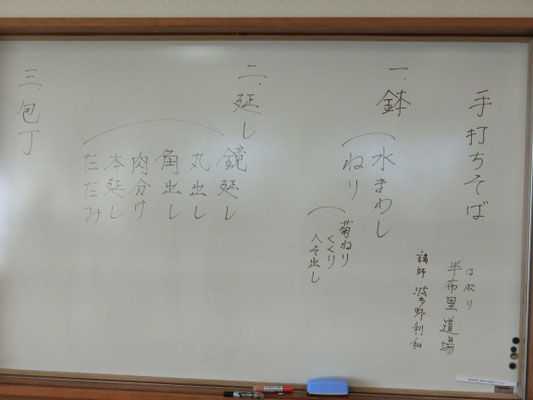 手打ちそば
はぶり
半布里道場
講師 波多野利和
一.鉢
水まわし
ねり
菊ねり
くくり
へそ出し
二.延し
鏡延し
丸出し
角出し
肉分け
本延し
たたみ
三.包丁